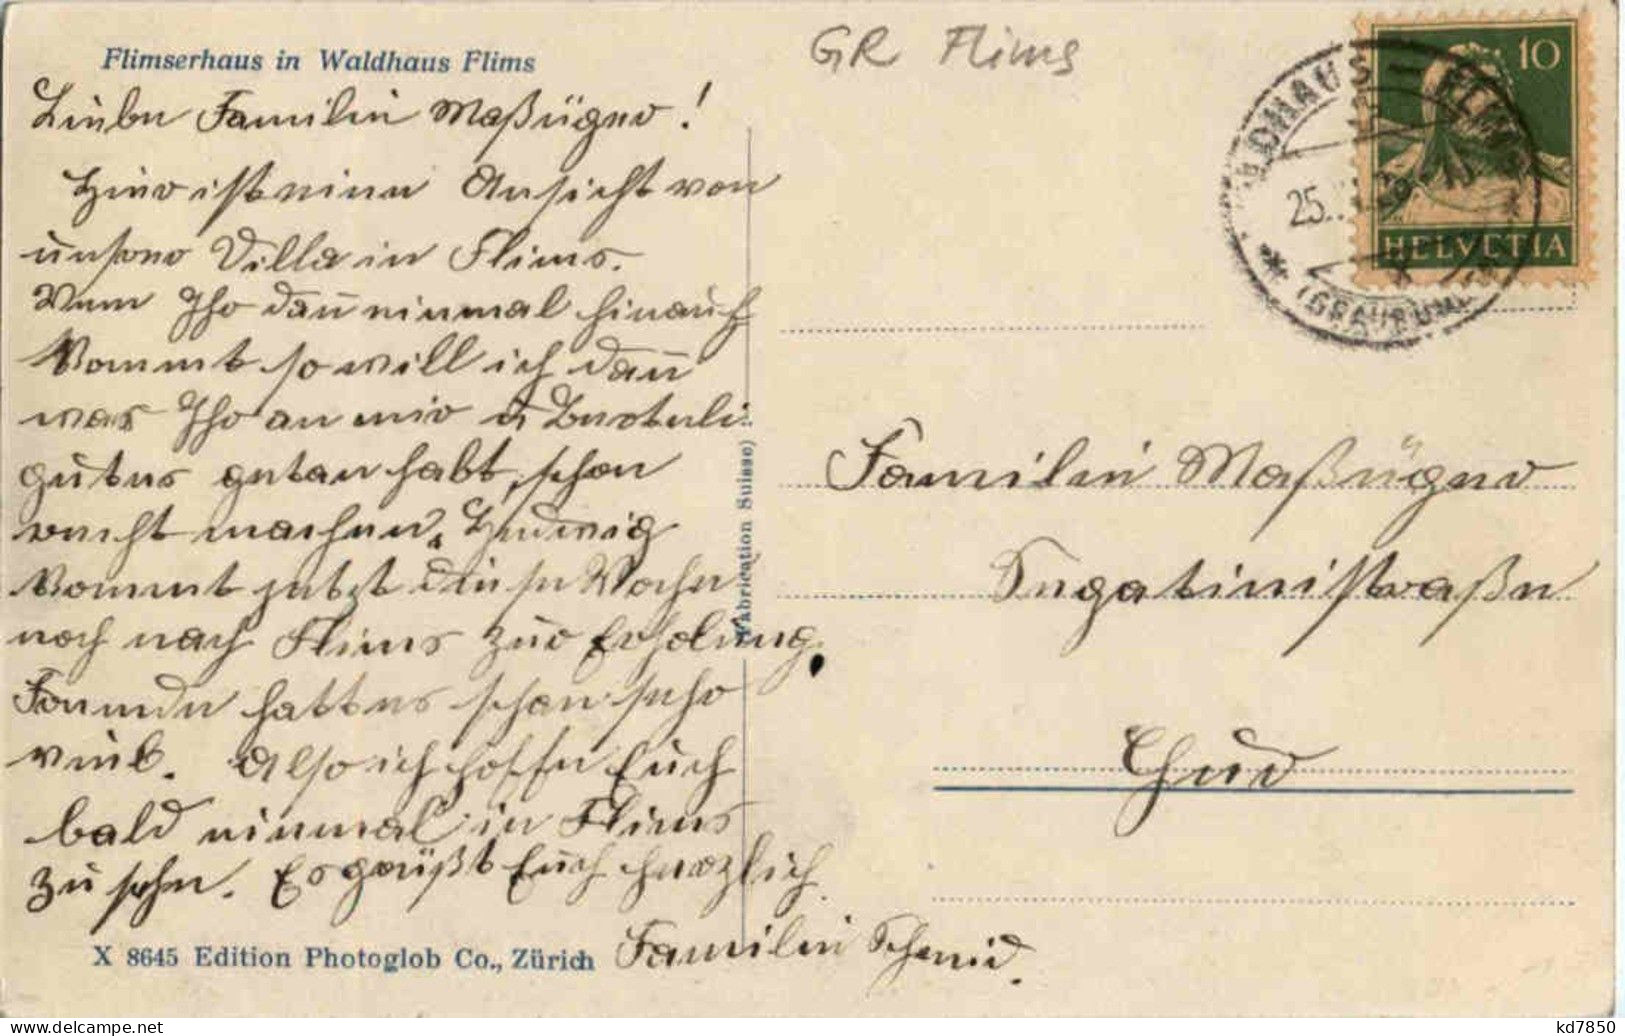 GR Flims
Flimserhaus in Waldhaus Flims
Liebe Familie Maßüger!
Hier ist eine Ansicht von
unserer Villa in Flims.
Wenn Ihr dan̄ einmal hinauf
kommt so will ich dan̄
was Ihr an mir u Berteli
gutes getan habt, schon
recht machen. Hedwig
kommt jetzt diese Woche
noch nach Flims zur Erholung.
Fremde hatt es schon sehr
viel. Also ich hoffe Euch
bald einmal in Flims
zu sehn. Es grüßt Euch herzlich
Familie Schmid.
X 8645 Edition Photoglob Co., Zürich
(Fabrication Suisse)
10
HELVETIA
WALDHAUS - FLIMS
25.
(GRAUBÜND.)
Familie Maßüger
Segantinistraße
Chur
kd7850